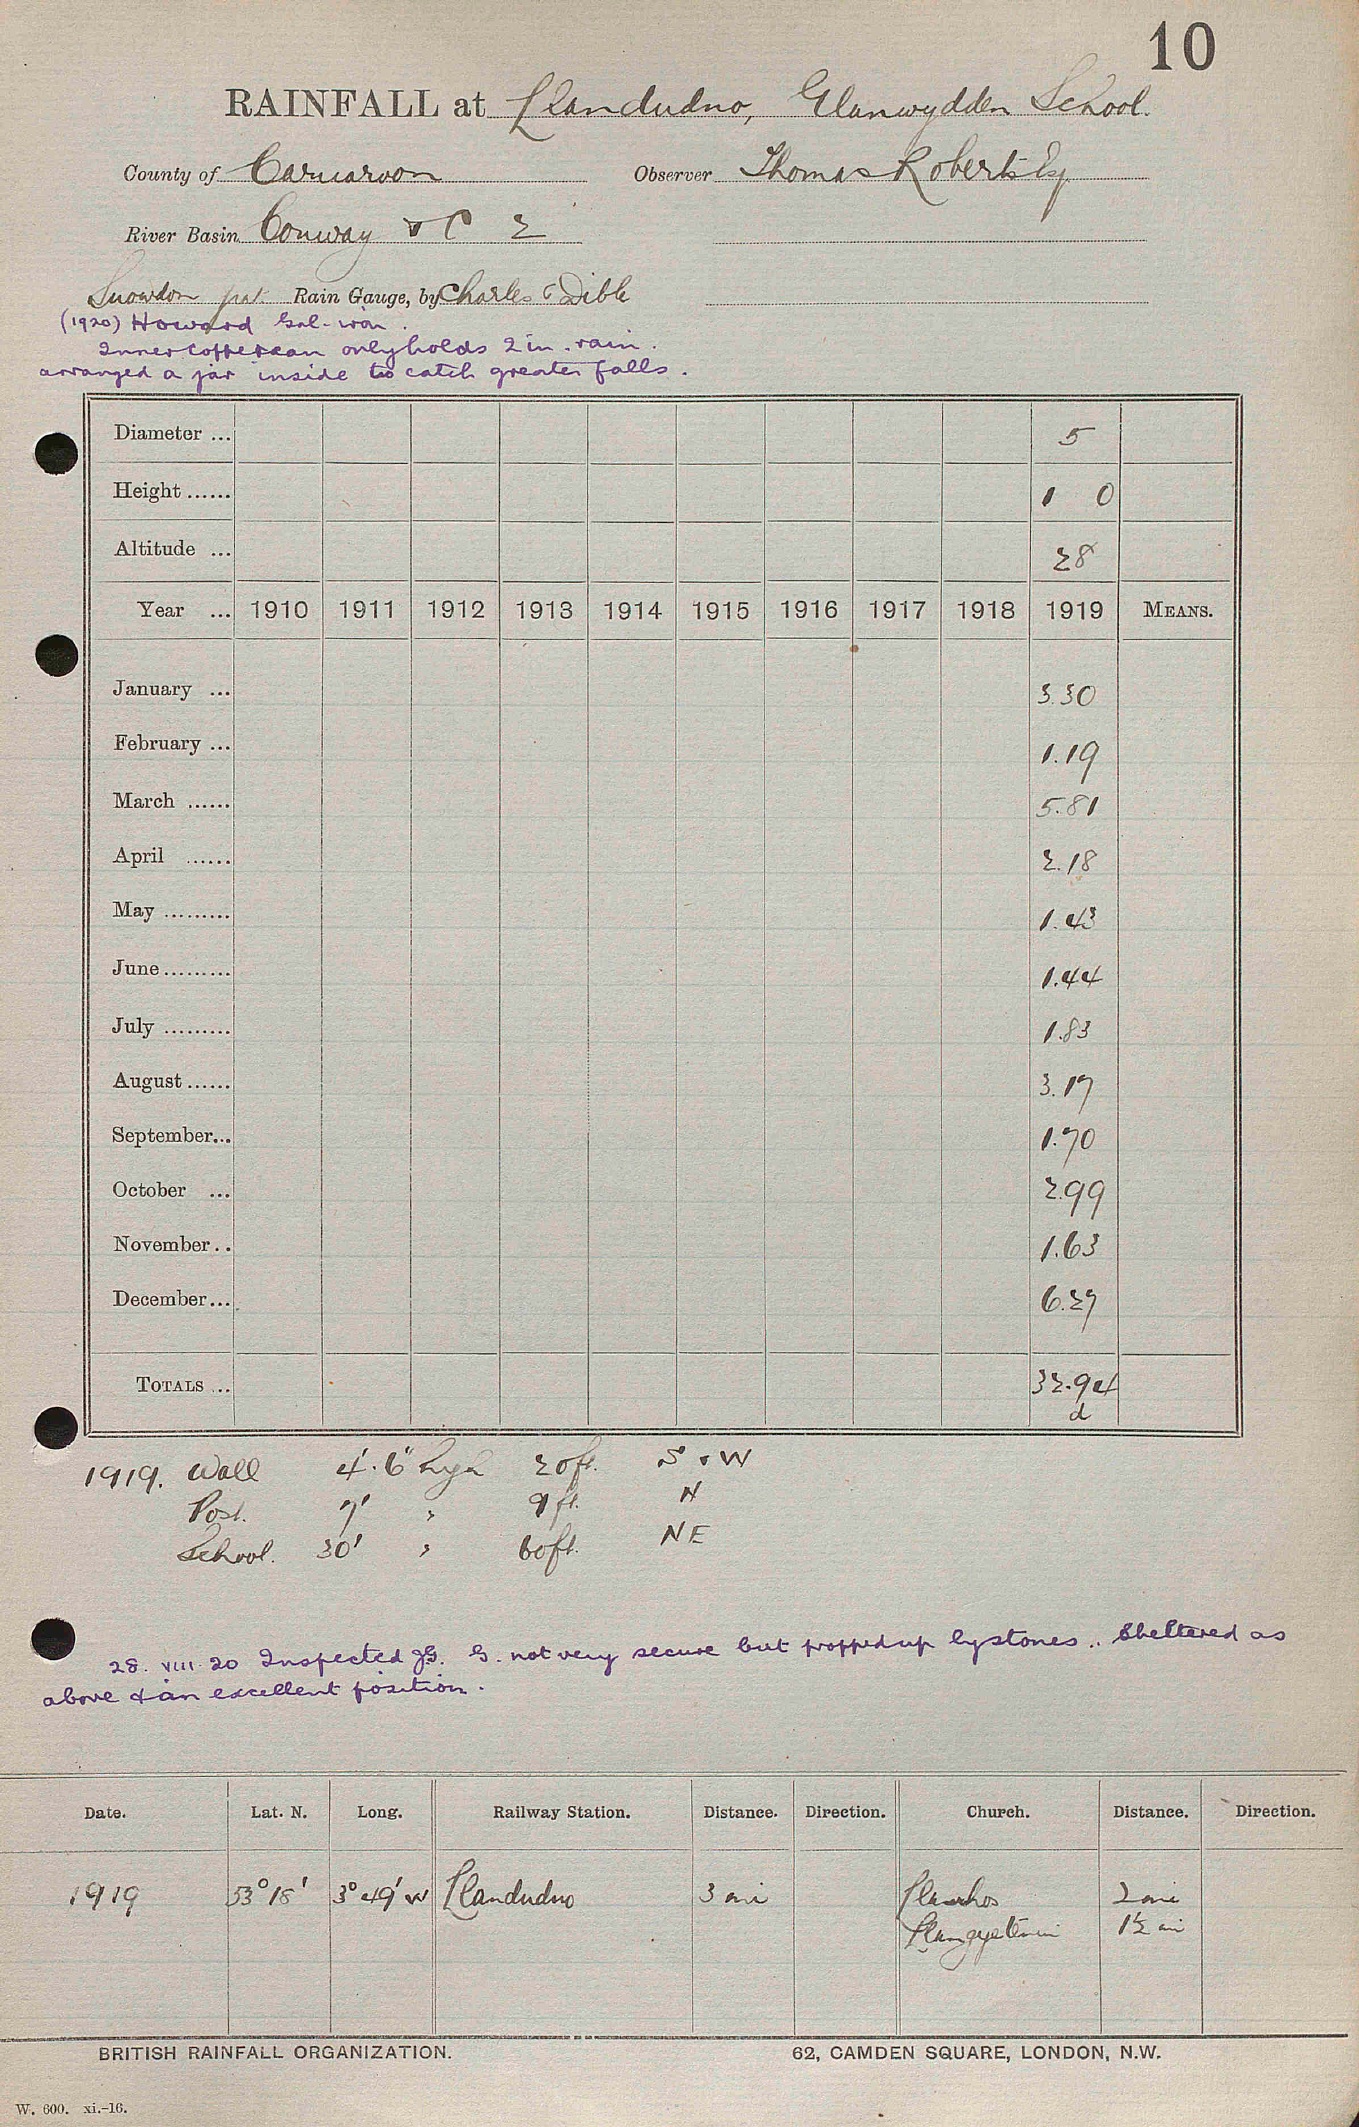 10
RAINFALL at Llandudno, Glanwydden School.
County of Carnarvon Observer Thomas Roberts Esq
River Basin Conway & C 2
Snowdon pat Rain Gauge, by Charles & Dible
(1920) Howard Gal-iron.
Inner copper can only holds 2 in. rain.
arranged a jar inside to catch greater falls.
Diameter ... 5
Height ...... 1 0
Altitude ... 28
Year ... 1910 1911 1912 1913 1914 1915 1916 1917 1918 1919 MEANS.
January ... 3.30
February ... 1.19
March ...... 5.81
April ...... 2.18
May ......... 1.43
June ......... 1.44
July ......... 1.83
August ...... 3.17
September... 1.70
October ... 2.99
November.. 1.63
December... 6.27
TOTALS ... 32.94
d
1919. Wall 4'.6" high 20ft. S & W
Post. 7' " 9ft. N
School. 30' " 60ft. NE
28. VIII. 20 Inspected G. not very secure but propped up by stones.. Sheltered as
above & in excellent position.
Date. Lat. N. Long. Railway Station. Distance. Direction. Church. Distance. Direction.
1919 53° 18' 3° 49' W Llandudno 3 mi Llanrhos 2 mi
Llangystenin 1½ mi
BRITISH RAINFALL ORGANIZATION. 62, CAMDEN SQUARE, LONDON, N.W.
W. 600. xi.-16.